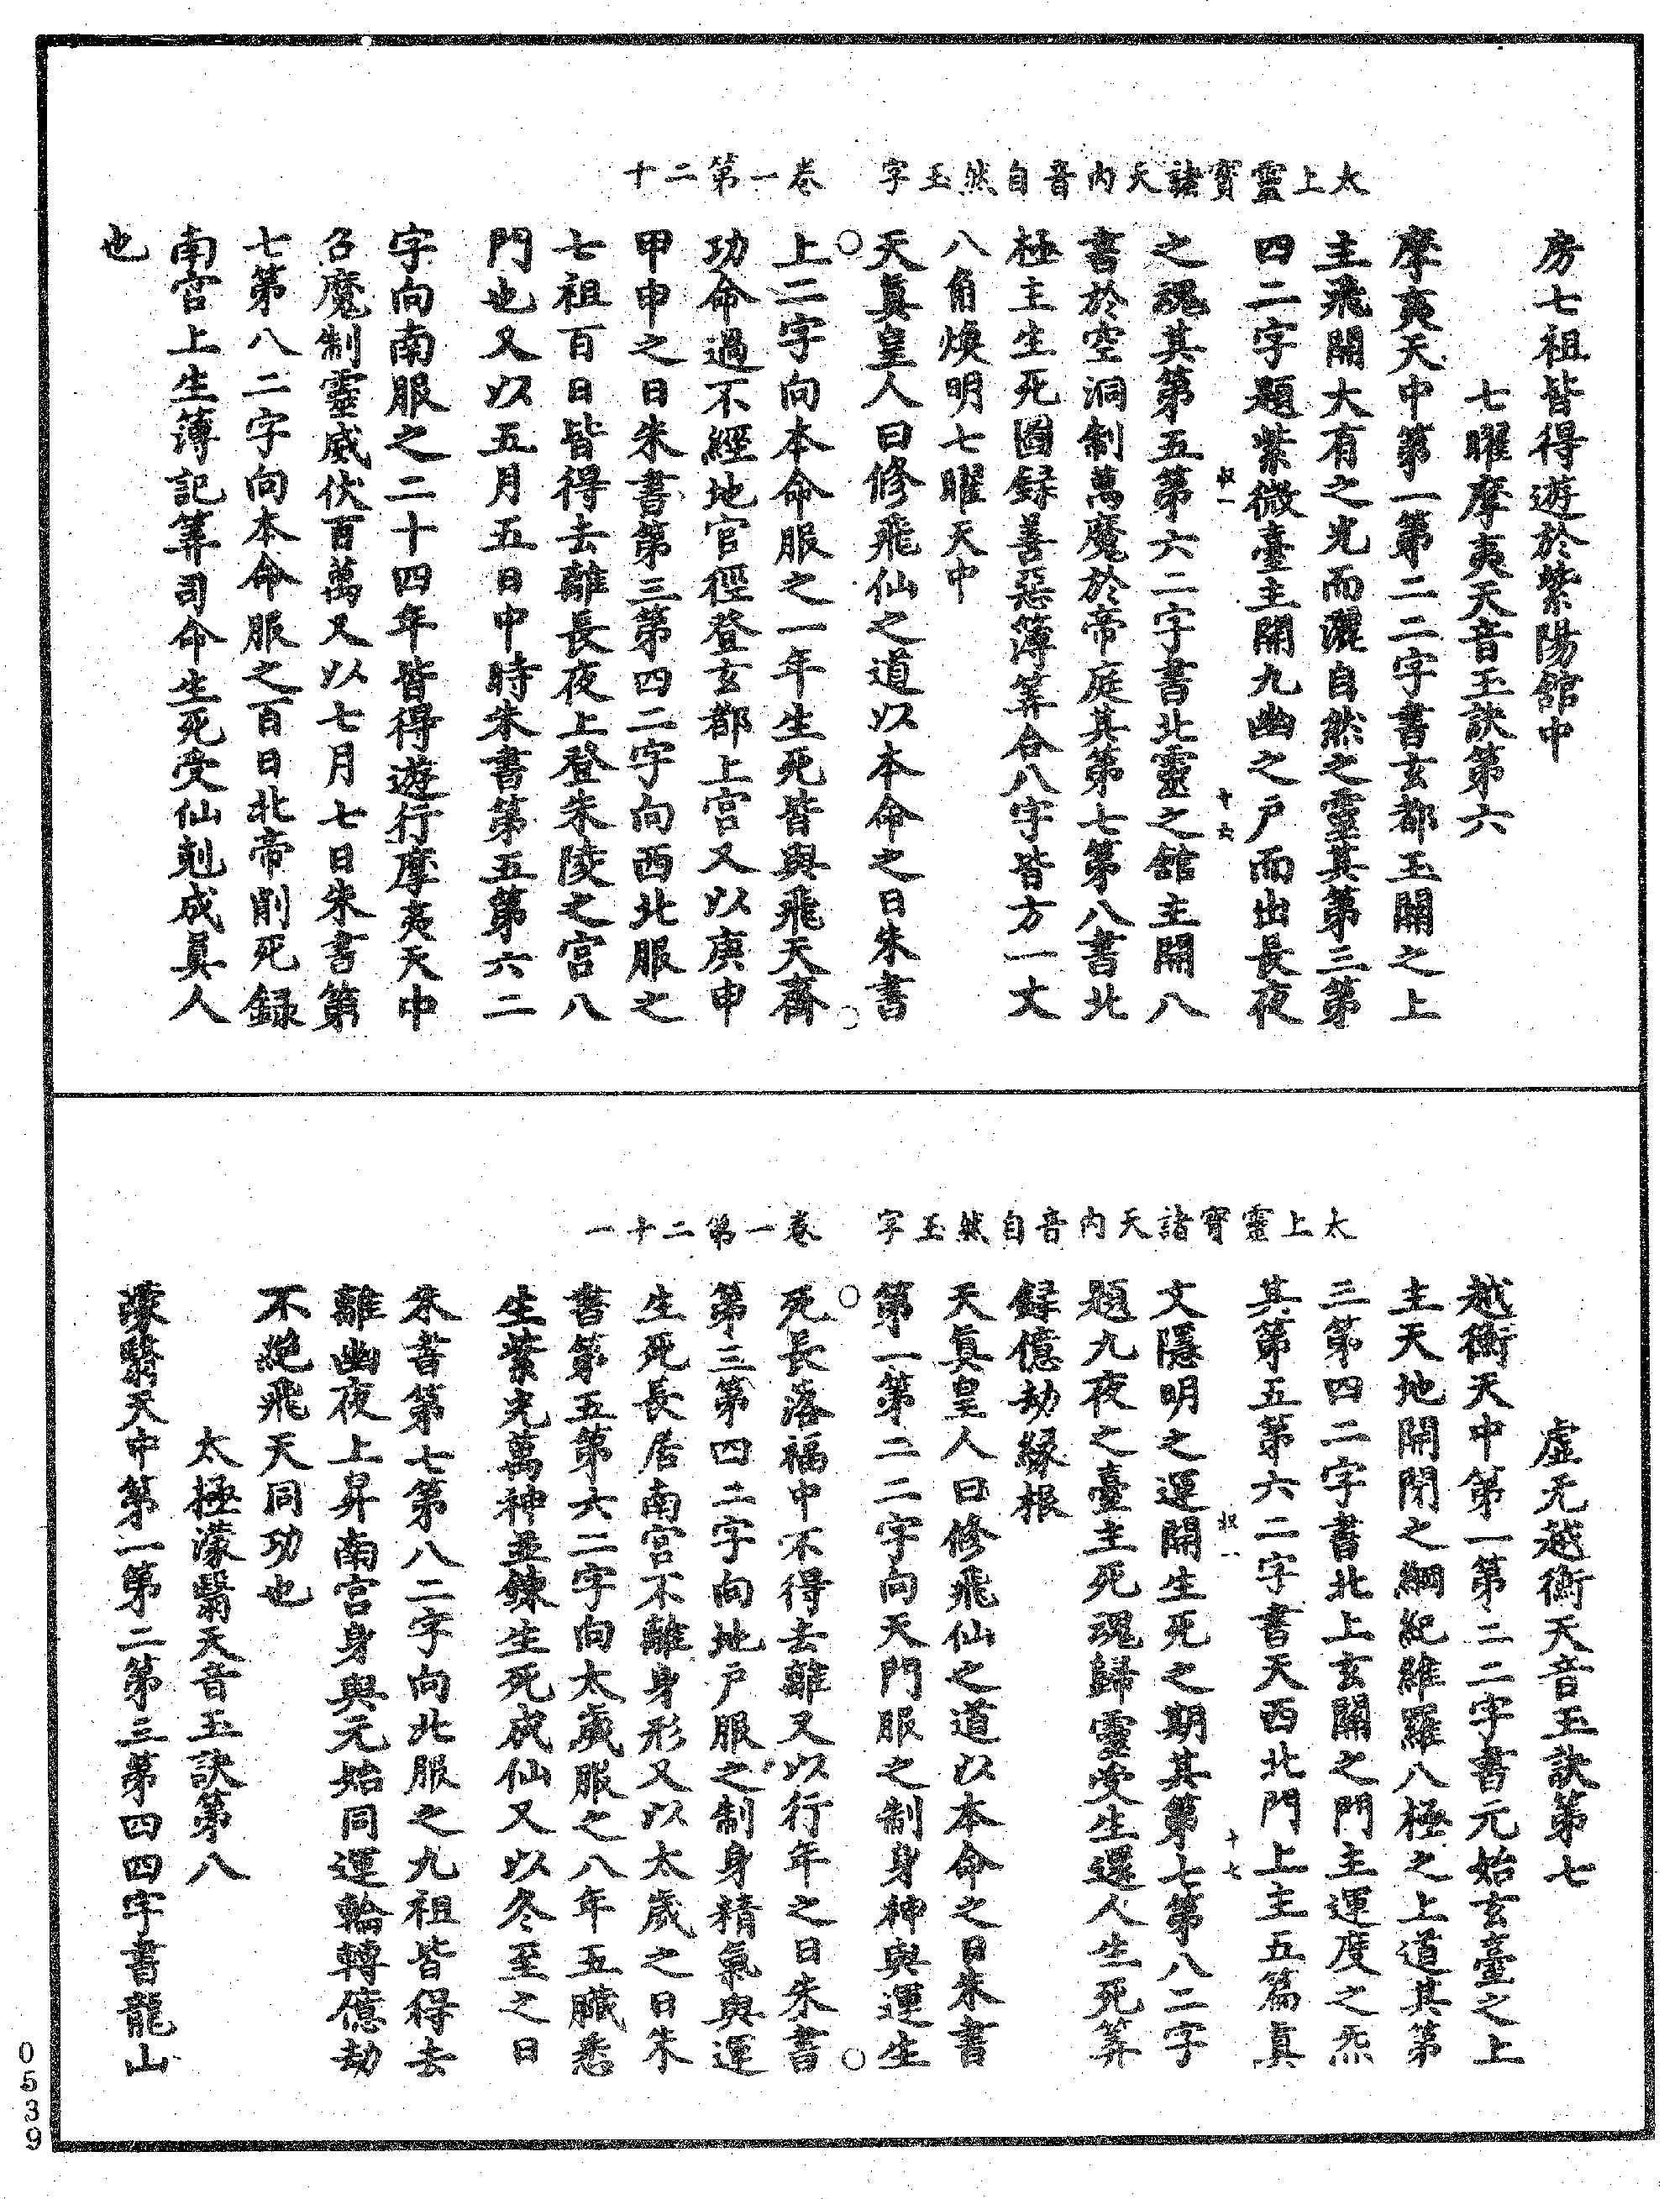 太上靈寶諸天內音自然玉字　卷一第二十
房七祖皆得遊於紫陽館中
七曜摩夷天音玉訣第六
摩夷天中第一第二二字書玄都玉闕之上
主飛開大有之光而灑自然之靈其第三第
四二字題紫微臺主開九幽之戶而出長夜
叔一　十六
之魂其第五第六二字書北靈之館主開八
書於空洞制萬魔於帝庭其第七第八書北
極主生死圖録善惡簿筭合八字皆方一丈
八角煥明七曜天中
天真皇人曰修飛仙之道以本命之日朱書
上二字向本命服之一年生死皆與飛天齊
功命過不經地官徑登玄都上宮又以庚申
甲申之日朱書第三第四二字向西北服之
七祖百日皆得去離長夜上登朱陵之宮八
門也又以五月五日中時朱書第五第六二
字向南服之二十四年皆得遊行摩夷天中
召魔制靈威伏百萬又以七月七日朱書第
七第八二字向本命服之百日北帝削死録
南宮上生簿記筭司命生死受仙剋成真人
也
太上靈寶諸天內音自然玉字　卷一第二十一
虛无越衡天音玉訣第七
越衡天中第一第二二字書元始玄臺之上
主天地開閉之綱紀維羅八極之上道其第
三第四二字書北上玄闕之門主運度之炁
其第五第六二字書天西北門上主五篇真
叔一　十七
文隱明之運開生死之期其第七第八二字
題九夜之臺主死魂歸靈受生還人生死筭
録億劫緣根
天真皇人曰修飛仙之道以本命之日朱書
第一第二二字向天門服之制身神與運生
死長落福中不得去離又以行年之日朱書
第三第四二字向地戶服之制身精氣與運
生死長居南宮不離身形又以太歲之日朱
書第五第六二字向太歲服之八年五臟悉
生紫光萬神並鍊生死成仙又以冬至之日
朱書第七第八二字向北服之九祖皆得去
離幽夜上昇南宮身與元始同運輪轉億劫
不絕飛天同功也
太極濛翳天音玉訣第八
濛翳天中第一第二第三第四四字書龍山
0539